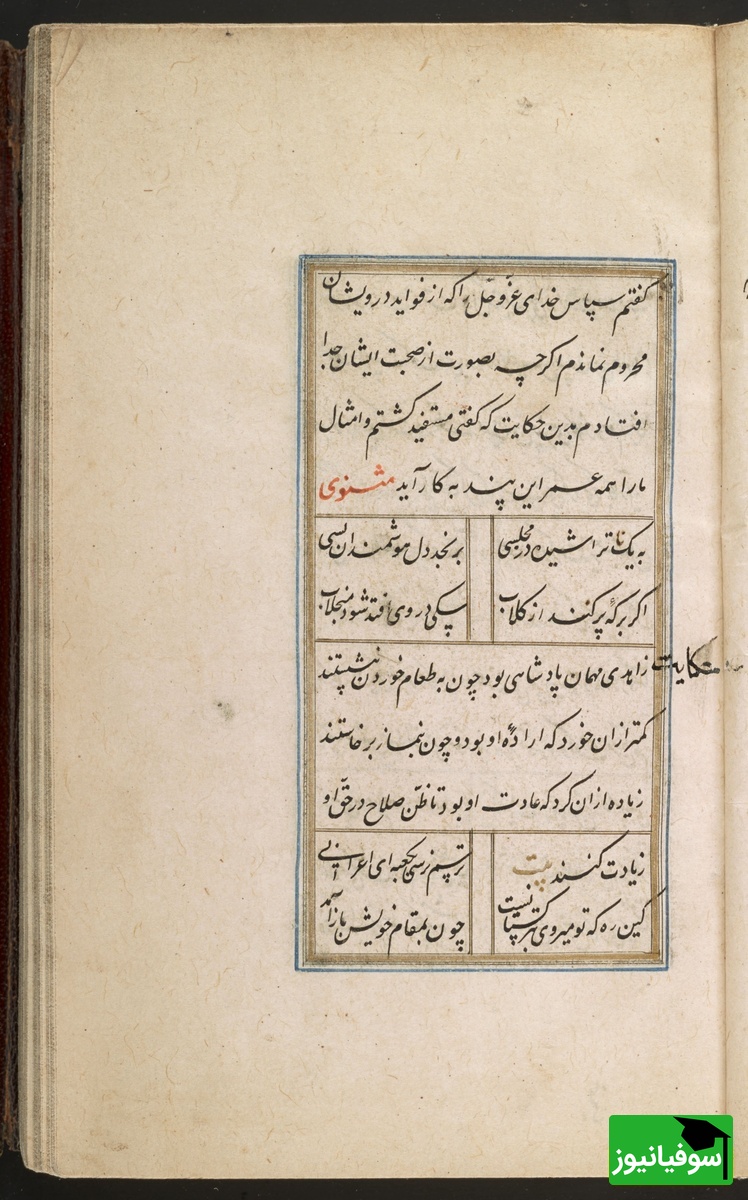 گفتم سپاس خدای عزّوجلّ را که از فواید درویشان
محروم نماندم اگرچه بصورت از صحبت ایشان جدا
افتادم بدین حکایت که گفتی مستفید گشتم و امثال
مارا همه عمر این پند به کار آید مثنوی
به یک نا تراشیده در مجلسی برنجد دل هوشمندان بسی
اگر برکهٔ پر کنند از گلاب سگی در وی افتد شود منجلاب
حکایت
زاهدی مهمان پادشاهی بود چون به طعام خوردن نشستند
کمتر ازان خورد که ارادهٔ او بود و چون بنماز برخاستند
زیاده ازان کرد که عادت او بود تا ظنّ صلاح در حقّ او
زیادت کنند بیت ترسم نرسی بکعبه ای اعرابی
کین ره که تو میروی بترکستانست چون بمقام خویش باز آمد
سوفیانیوز